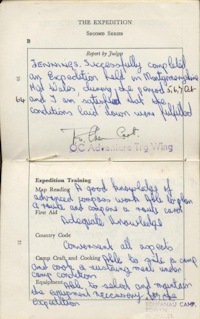 THE EXPEDITION
SECOND SERIES
B
Report by Judges
JENNINGS. Successfully completed
an Expedition held in Montgomeryshire
Mid Wales during the period 5,6,7 Oct
64 and I am satisfied that the
conditions laid down were fulfilled
Capt
OC Adventure Trg Wing
Expedition Training
Map Reading A good knowledge of
advanced compass work. Able to plan
a route and compose a route card
First Aid
Adequate knowledge
Country Code
Conversant all aspects
Camp Craft and Cooking Able to pitch a camp
and cook a sustaining meal under
camp conditions
Equipment Able to select and maintain
the equipment necessary for the
expedition
CAMP,